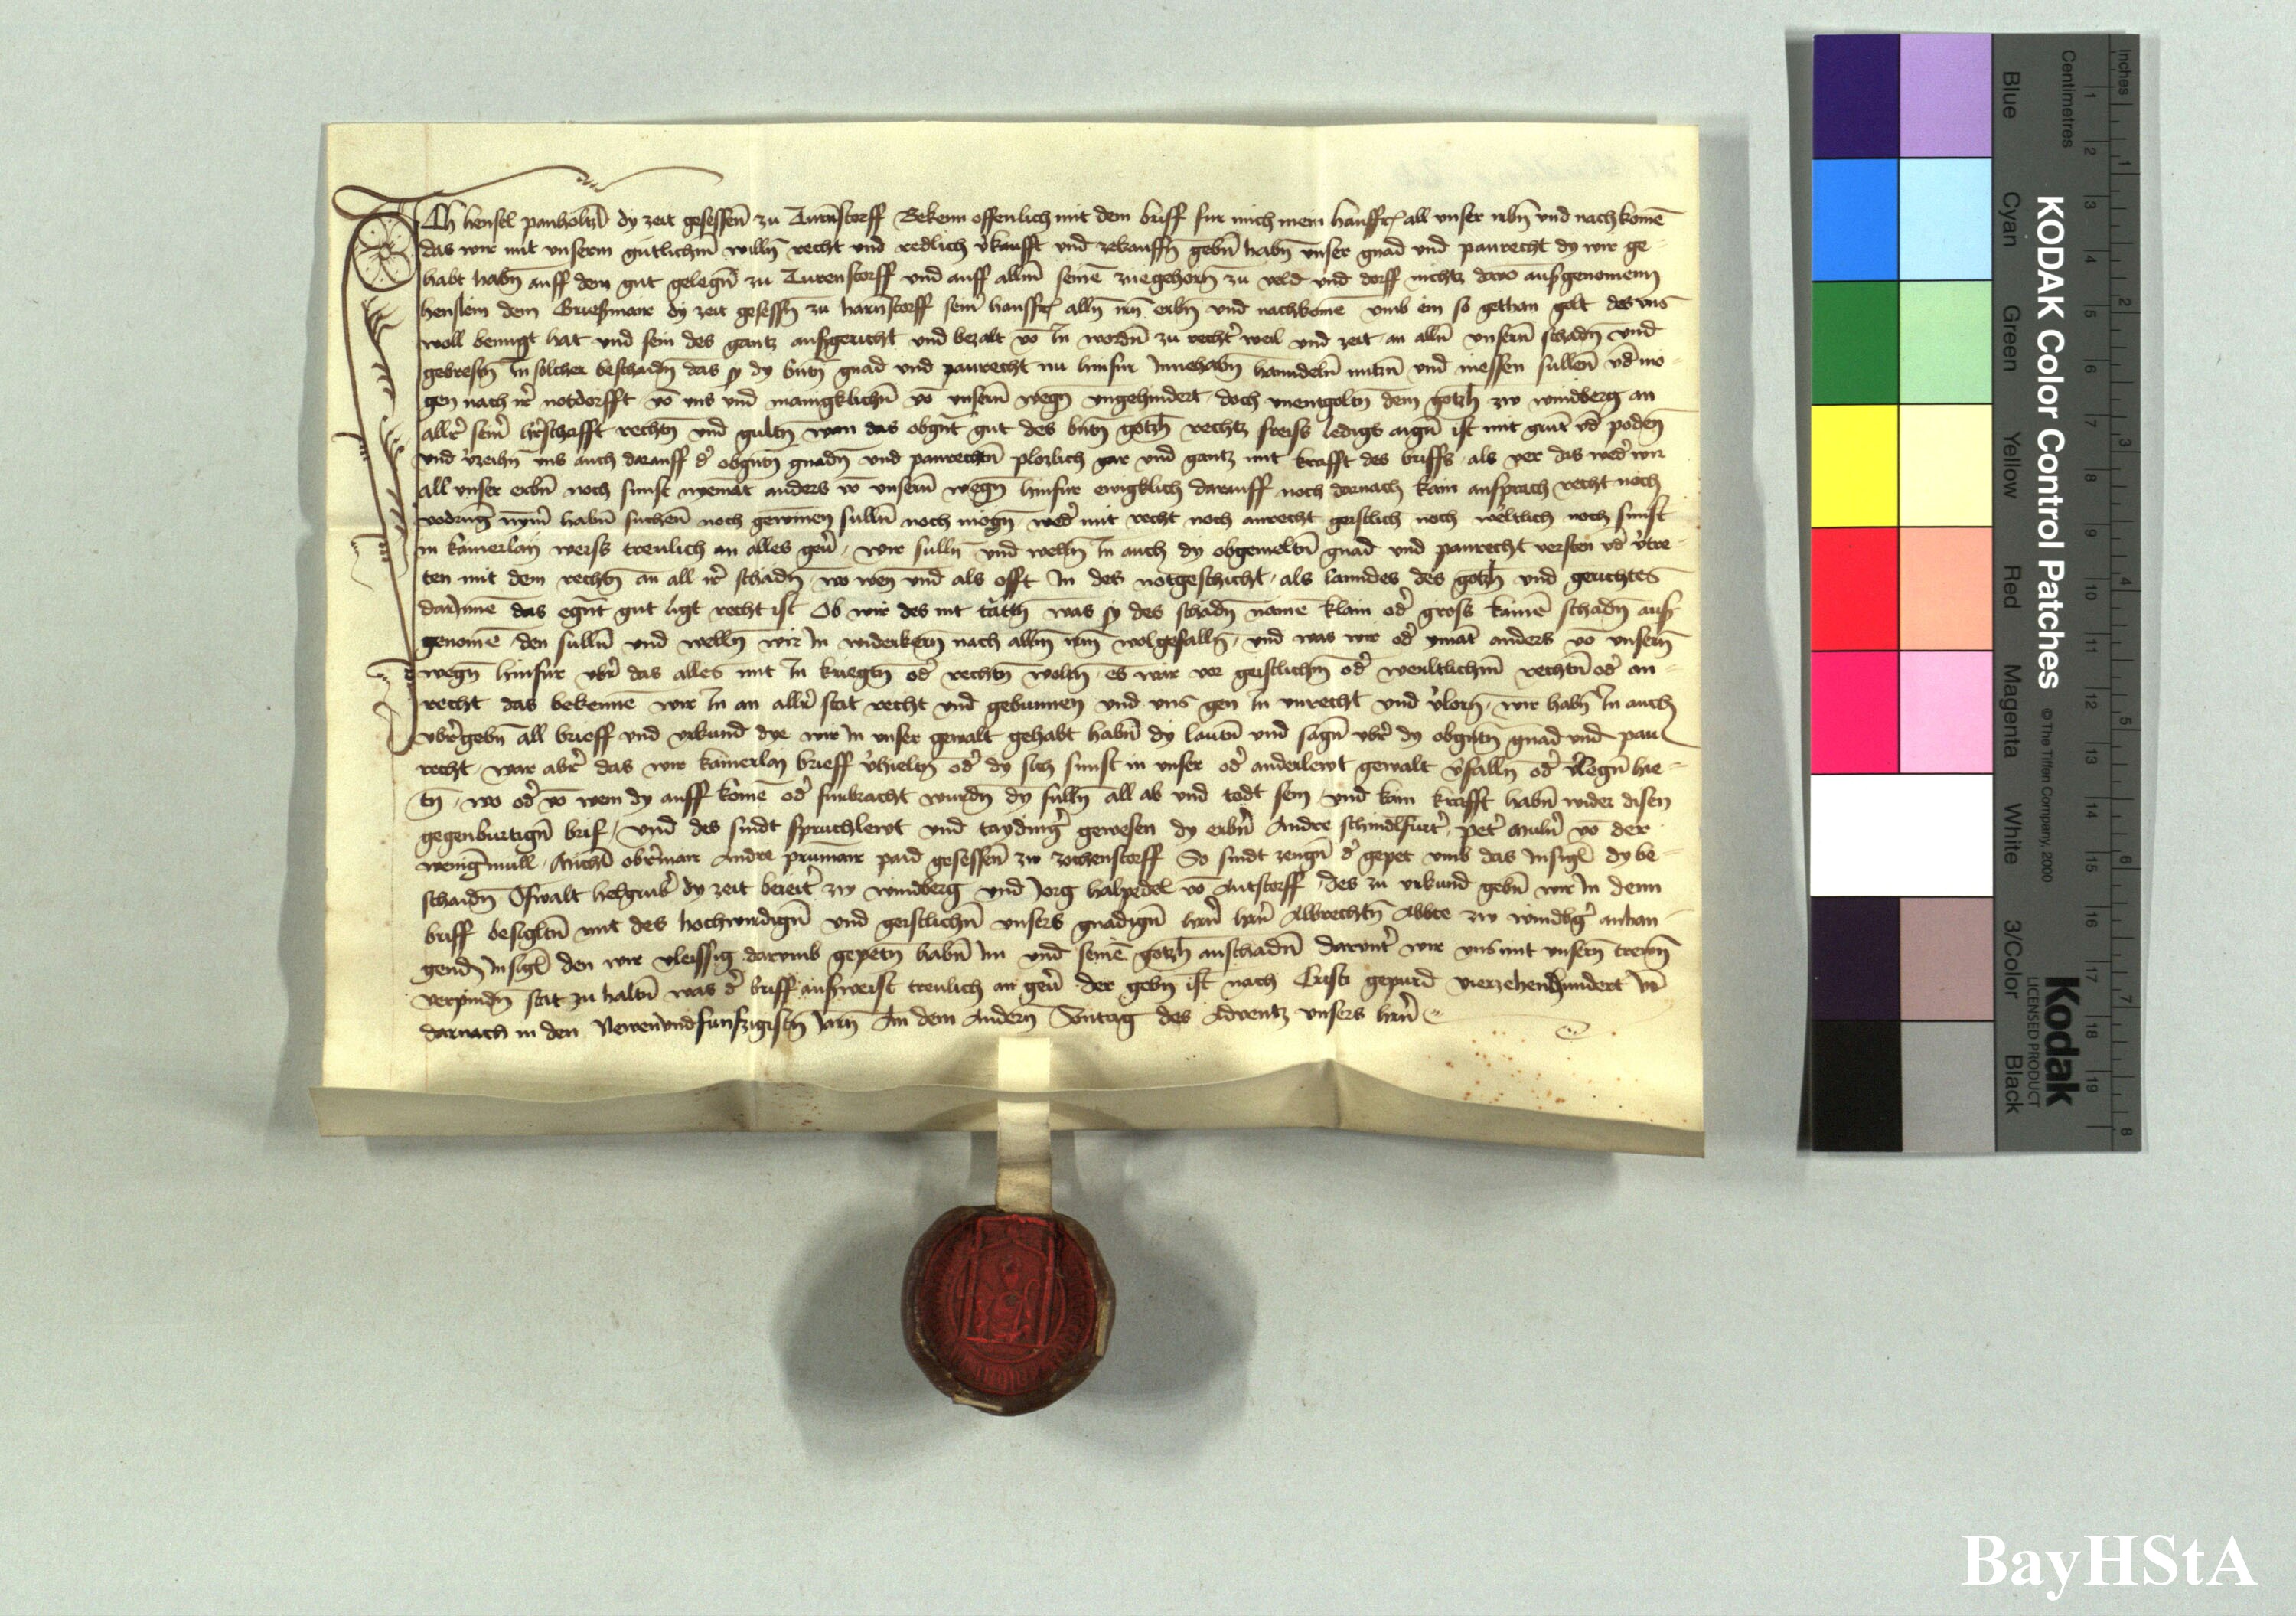 Ich hensel panholtz̄ dy zeit gesessen̄ zu Turn̄storff Bekenn offenlich mit dem briff fur mich mein hausfr̄ all unser erbn̄ und nachkomē
das wir mit unserm gutlichm̄ willn̄ recht und redlich v̾kaufft und zekauffn̄ gebn̄ habn̄ unser gnad und paurecht dy wir ge-
habt habn̄ auff dem gut gelegn̄ zu Turenstorff und auff allm̄ seinē zuegehorn̄ zu veld und dorff nichtz davō ausgenomenn
henslein dem Griesmair dy zeit gesessn̄ zu harn̄storff sein̄ hausfr̄ alln̄ irn̄ erbn̄ und nachkomē umb ein so gethan gelt des uns
woll benugt hat und sein des gantz ausgericht und bezalt vō In wordn̄ zu recht̾ weil und zeit an alln̄ unsern̄ schadn̄ und
gebrestn̄ In solcher beschaidn̄ das sy dy bntn̄ gnad und paurecht nu hinfur Innehabn̄ hanndeln̄ nutzn̄ und niessen sullen̄ vd̄ mo-
gen nach ir̄ notdorfft vō uns und maingklichn̄ vō unsern̄ wegn̄ ungehindert doch unentgoltn̄ dem gotzh̄ zw windberg an
allr̄ sein̄ hr̄schafft rechtn̄ und gultn̄ wan das obgn̄t gut des bntn̄ gotzh̄ rechtz freiss ledigs aign̄ ist mit grūt vd̄ poden̄
und v̾zeihn̄ uns auch darauff d̾ obgntn̄ gnadn̄ und paurechtn̄ plozlich gar und gantz mit krafft des briffs als ver das wed̾ wir
all unser erbn̄ noch sunst nyemāt anders vō unsern̄ wegn̄ hinfur ewigklich darauff noch darnach kain ansprach recht noch
vodrūg nym̄ habn̄ suchen̄ noch gewinen sulln̄ noch mogn̄ wed̾ mit recht noch anrecht geistlich noch weltlich noch sunst
in kainerlay weiss treulich an alles gev̾ wir sulln̄ und welln̄ In auch dy obgemeltn̄ gnad und paurecht versten vd̄ v̾tre-
ten mit dem rechtn̄ an all ir̄ schadn̄ wo wen und als offt In des notgeschicht als lanndes des gotzh̄ und gerichtes
dar Innē das egn̄t gut ligt recht ist Ob wir des nit tāttn̄ was sy des schadn̄ namē klain od̾ gross kainē schadn̄ aus
genomē den sulln̄ und welln̄ wir In widerkern̄ nach allm̄ irm̄ wolgefalln̄ und was wir od̾ ymāt anders vō unsern̄
wegn̄ hinfur ubr̄ das alles mit In kriegtn̄ od̾ rechtn̄ woltn̄ es war vor geistlichm̄ od̾ werltlichm̄ rechtn̄ od̾ an-
recht das bekennē wir In an allr̄ stat recht und gebunnen und uns gen In unrecht und v̾lorn̄ wir habn̄ In auch
ubr̄gebn̄ all brieff und urkund dye wir In unser gewalt gehabt habn̄ dy lautn̄ und sagn̄ ubr̄ dy obgntn̄ gnad und pau
recht war abr̄ das wir kainerlay brieff v̾hieltn̄ od̾ dy sich sunst in unser od̾ anderlewt gewalt v̾falln̄ od̾ v̾legn̄ hie-
tn̄ wo od̾ vō wem dy auff komē od̾ furbracht wurdn̄ dy sulln̄ all ab und todt sein und kain krafft habn̄ wider disen
gegenburtign̄ brif und des sindt spruchlewt und tayding̾ gewesen dy erbn̄ Andre schindlfurt̾ pet̾ muln̾ vō der
wenigmull Michl obr̄mair Andre prūmair paid gesessen̄ zw storff So sindt zeugn̄ d̾ gepet umb das Insigl dy be-
schaidn̄ Oswalt hehgrub̾ dy zeit bereit̾ zw windberg und Jorg halpedel vō Autstorff des zu urkund gebn̄ wir In denn
briff besigltn̄ mit des hochwirdign̄ und geistlichn̄ unsers gnadign̄ hrn̄ hrn̄ Albrechtn̄ Abbte zw windbg̾ anhan-
gend Insigl den wir vleissig darumb gepetn̄ habn̄ Im und seinē gotzh̄ anschadn̄ darunt̾ wir uns mit unsern̄ trewn̄
verpindn̄ stat zu haltn̄ was d̾ briff ausweist treulich an gev̾ der gebn̄ ist nach Cristi gepurd vierzehenhundert Jar
darnach in den Newenundfunfzigistn̄ Jarn̄ An dem Andern̄ Sontag des Advents unsers hrn̄
KODAK Color Control Patches © The Tiffen Company, 2000
Kodak
LICENSED PRODUCT
Inches 1 2 3 4 5 6 7 8
Centimetres 1 2 3 4 5 6 7 8 9 10 11 12 13 14 15 16 17 18 19
Blue Cyan Green Yellow Red Magenta White 3/Color Black
BayHStA